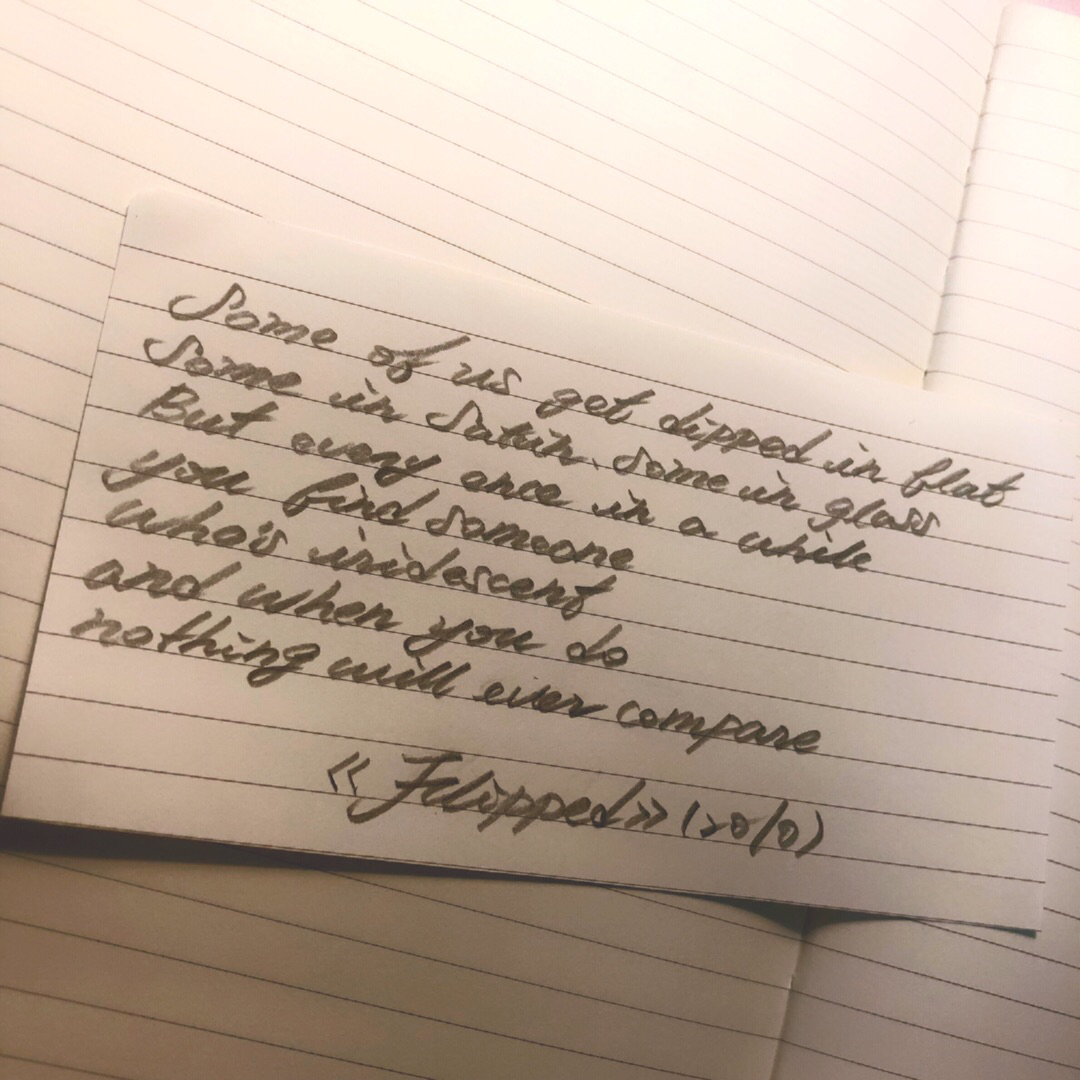 Some of us get dipped in flat
Some in Satin, some in glass
But every once in a while
you find someone
who's iridescent
and when you do
nothing will ever compare
《Flipped》(2010)